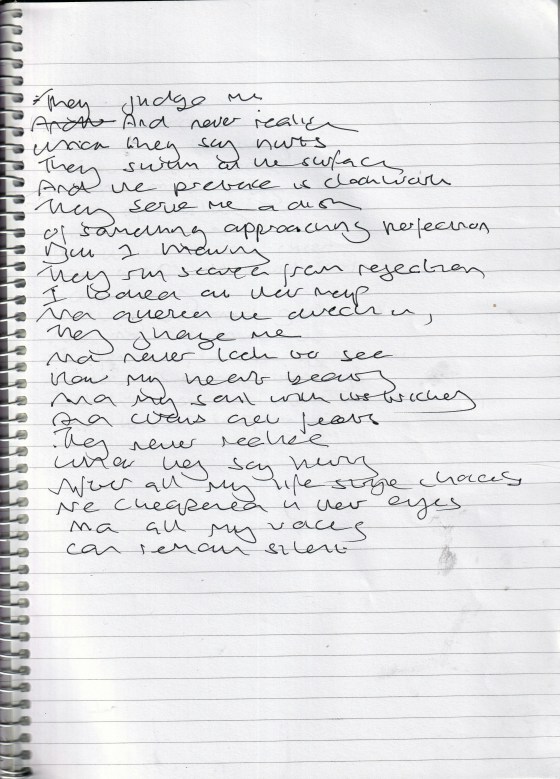 They judge me
And never realise
What they say hurts
They swim at the surface
And the pretence is clockwork
They serve me a dish
of something approaching perfection
But I know
They run scared from rejection
I looked at their map
And queried the direction,
They judge me
And never look to see
How my heart beats
And my soul with its
And
They never realise
What they say hurts
After all my life style choices
Are cheapened in their eyes
And all my voices
can remain silent